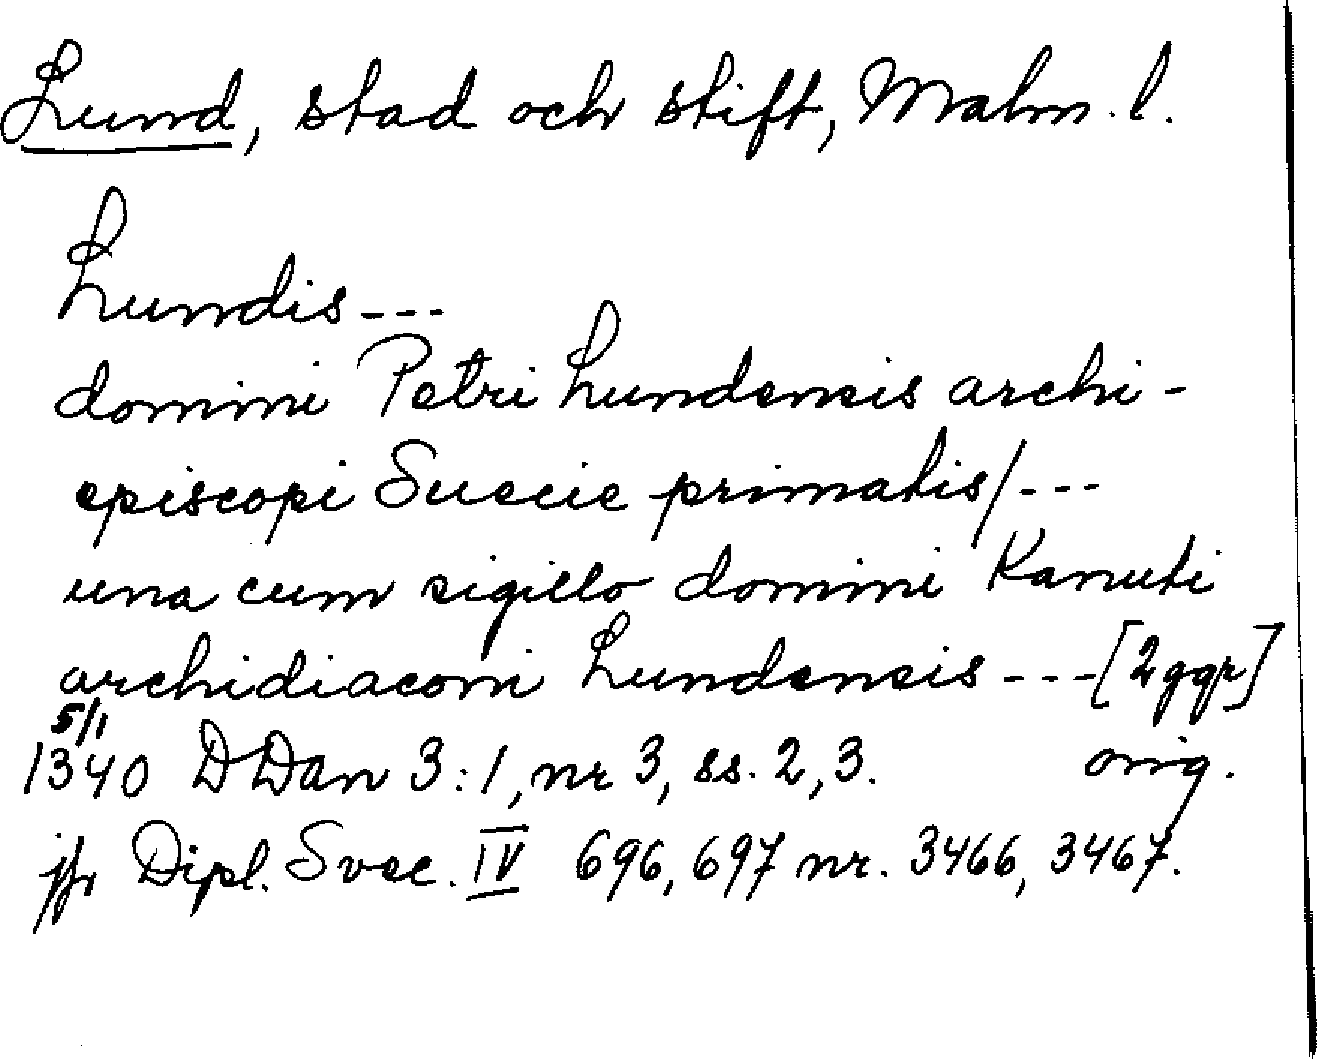 Lund, stad och stift, Malm. l.
Lundis---
domini Petri Lundensis archi-
episcopi Suecie primatis/---
una cum sigillo domini Kanuti
archidiaconi Lundensis---[2ggr]
5/1
1340 DDan 3:1, nr 3, ss. 2, 3. orig.
jfr Dipl. Svec. IV 696, 697 nr. 3466, 3467.